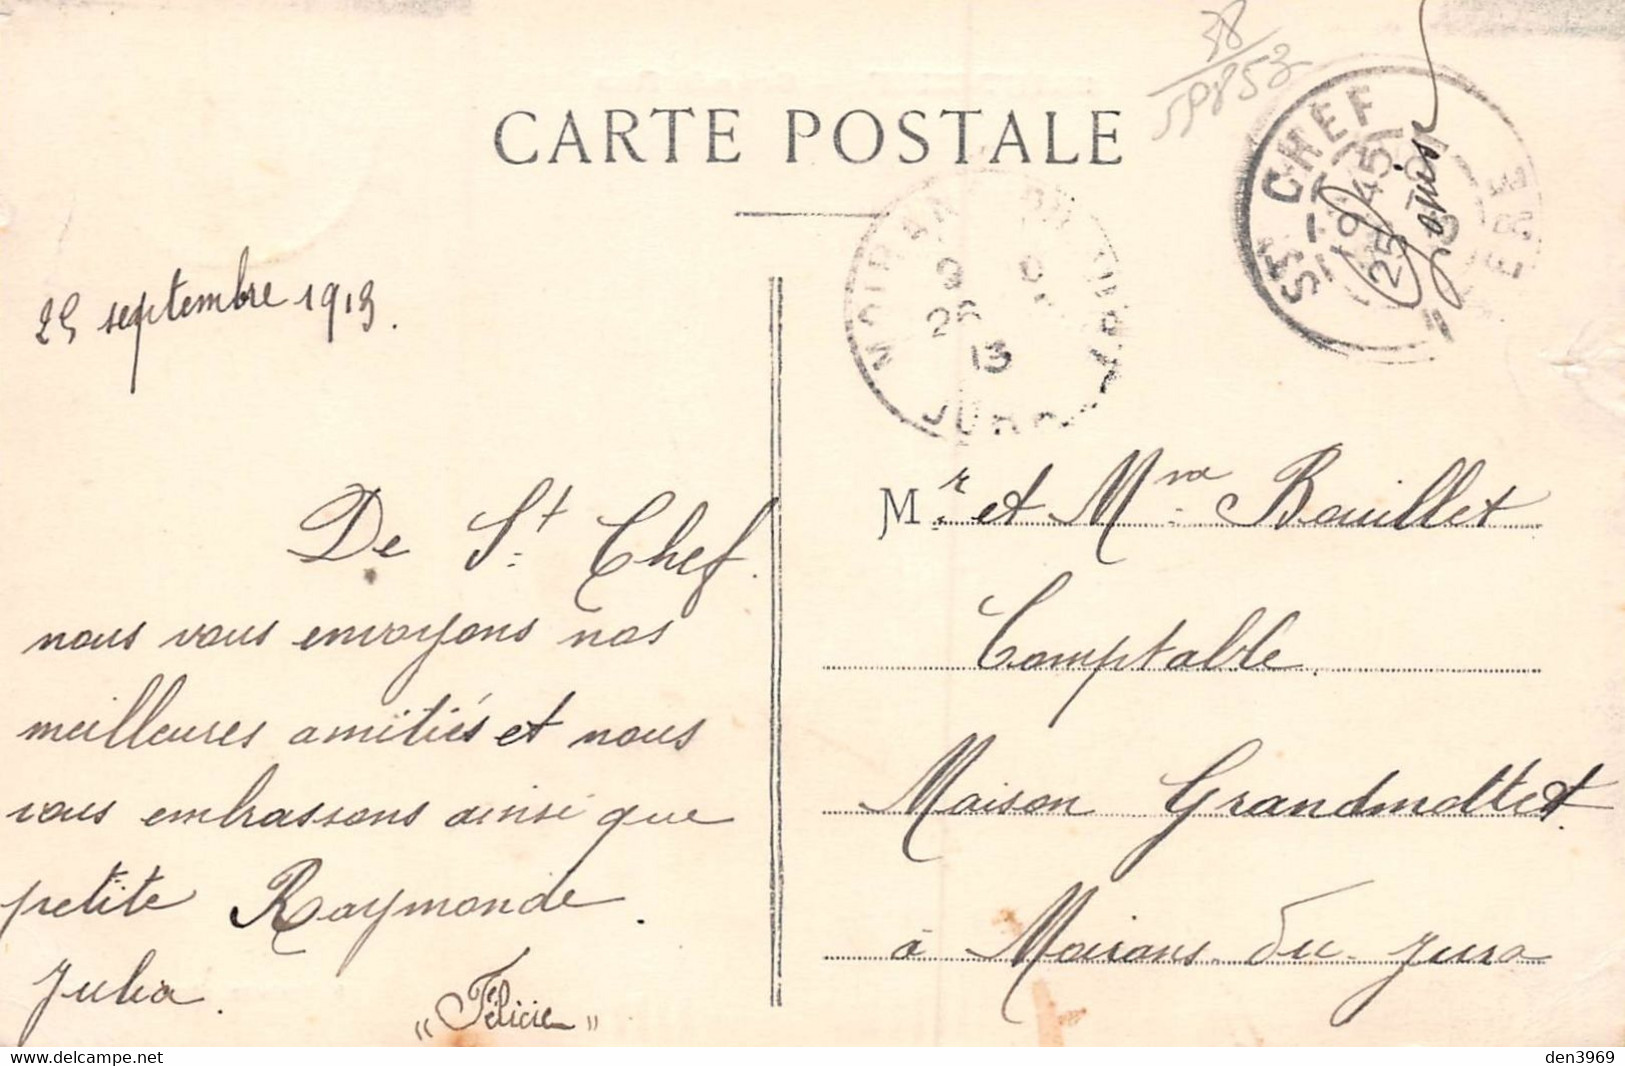 38
59853
CARTE POSTALE
ST CHEF
ISÈRE
19 45
25
Louise
MOIRANS DU JURA
26
13
JURA
25 septembre 1913.
De St Chef.
nous vous envoyons nos
meilleures amitiés et nous
vous embrassons ainsi que
petite Raymonde.
Julia.
"Félicie"
Mr et Mme Bouillet
Comptable
Maison Grandmottet
à Moirans du Jura
delcampe.net
den3969